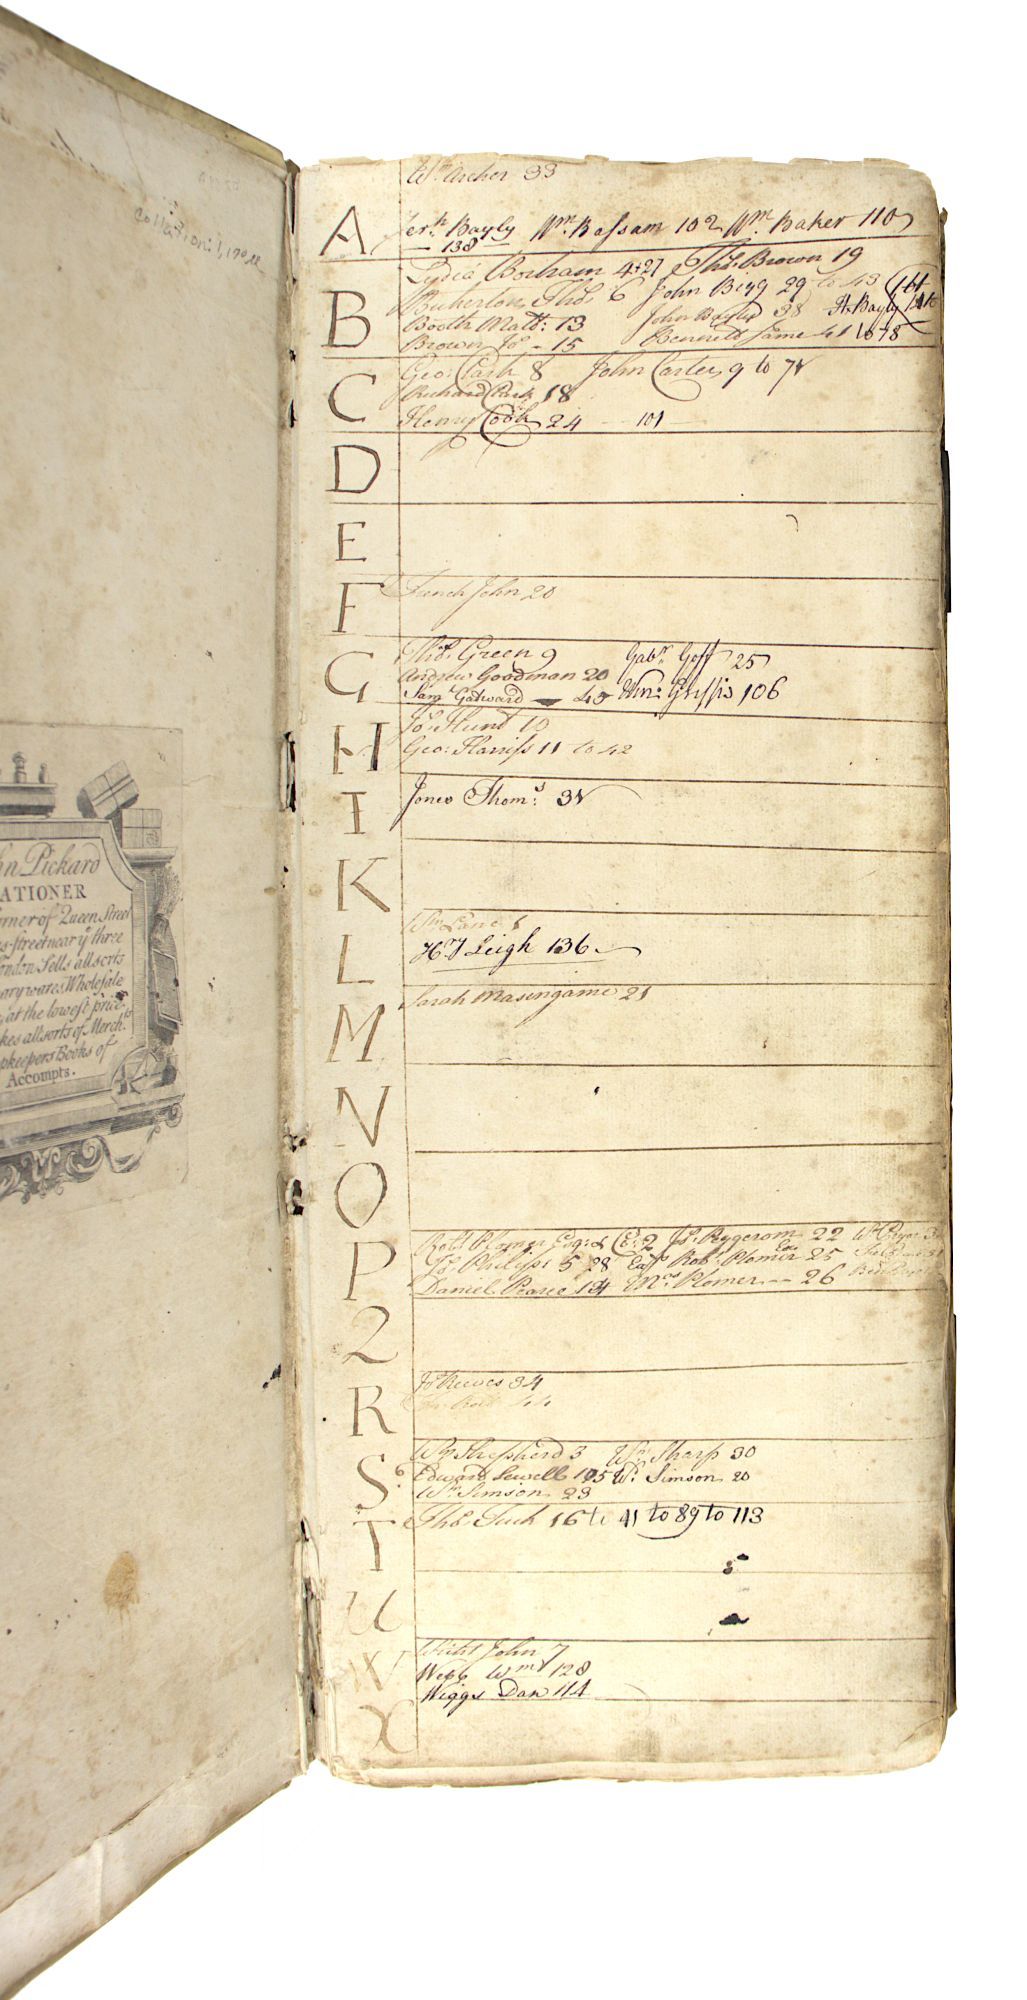 Collation: 170 ll
hn Pickard
ATIONER
rner of Queen Street
s-street near yᵉ three
ondon Sells all sorts
ary wares Wholesale
at the lowest price.
kes all sorts of Merchᵗˢ
pkeepers Books of
Accompts.
Wᵐ Archer 33
A
Jerʰ Bayly Wᵐ Bassam 102 Wᵐ Baker 110
138
B
Lydia Borham 4 27 Thoˢ: Brown 19
Thoˢ 6 John Bigg 29 to 43
Booth Matt: 13 John 38
Brown Joˢ - 15 Bennett Jame 41 to 78
C
Geo: Cark 8 John Carter 9 to
Richard 18
Henry Cook 24 101
D
E
F
Funch John 20
G
Thoˢ. Green 9 Gabʳˡ Goff 25
Andrew Goodman 20
Samˡ Gatward 45 Griffis 106
H
Joˢ. Hunt 10
Geo: Harriss 11 to 42
I
Jones Thomˢ:
K
L
Wᵐ Lane 1
Leigh 136
M
Sarah Masengame 21
N
O
P
Robᵗ Plomer Esqʳ: & Co: 2 22
Joˢ. Philips 5 28 Robᵗ Plomer 25
Daniel Pearce 14 Mʳˢ Plomer 26
2
R
Joˢ Reeves 34
44
S
Wᵐ Shepherd 3 Wᵐ Sharp 30
Edward Sewell 105 Wᵐ Simson 20
Wᵐ Simson 23
T
Thoˢ. Tuck 16 to 41 to 89 to 113
U
W
John 7
Webb Wᵐ 128
Wiggs Dan 114
X